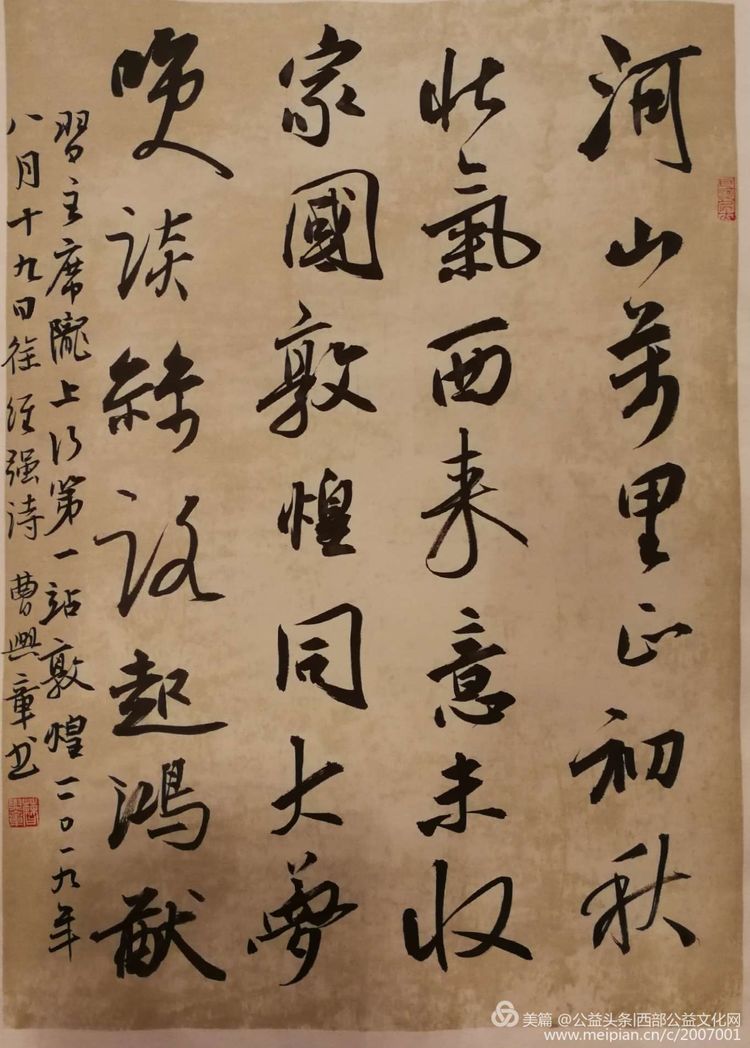 河山萬里正初秋
壯氣西来意未收
家國敦煌同大夢
笑談絲路起鴻猷
習主席隴上行第一站敦煌二〇一九年
八月十九日徐经强诗 曹興章书
美篇 @公益头条|西部公益文化网
www.meipian.cn/c/2007001